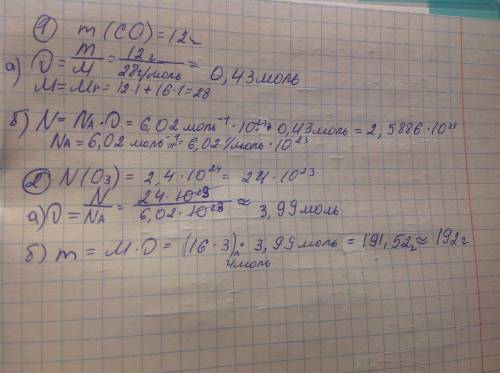 ① m(CO)=12г
а) ν = m/M = 12г/28г/моль = 0,43моль
M=Mr=12·1+16·1=28
б) N=NA·ν=6,02моль⁻¹·10²³·0,43моль=2,5886·10²³
NA=6,02моль⁻¹=6,02 1/моль·10²³
② N(O₃)=2,4·10²⁴=24·10²³
а) ν = N/NA = 24·10²³/6,02·10²³ ≈ 3,99моль
б) m=M·ν=(16·3)г/моль·3,99моль=191,52г≈192г